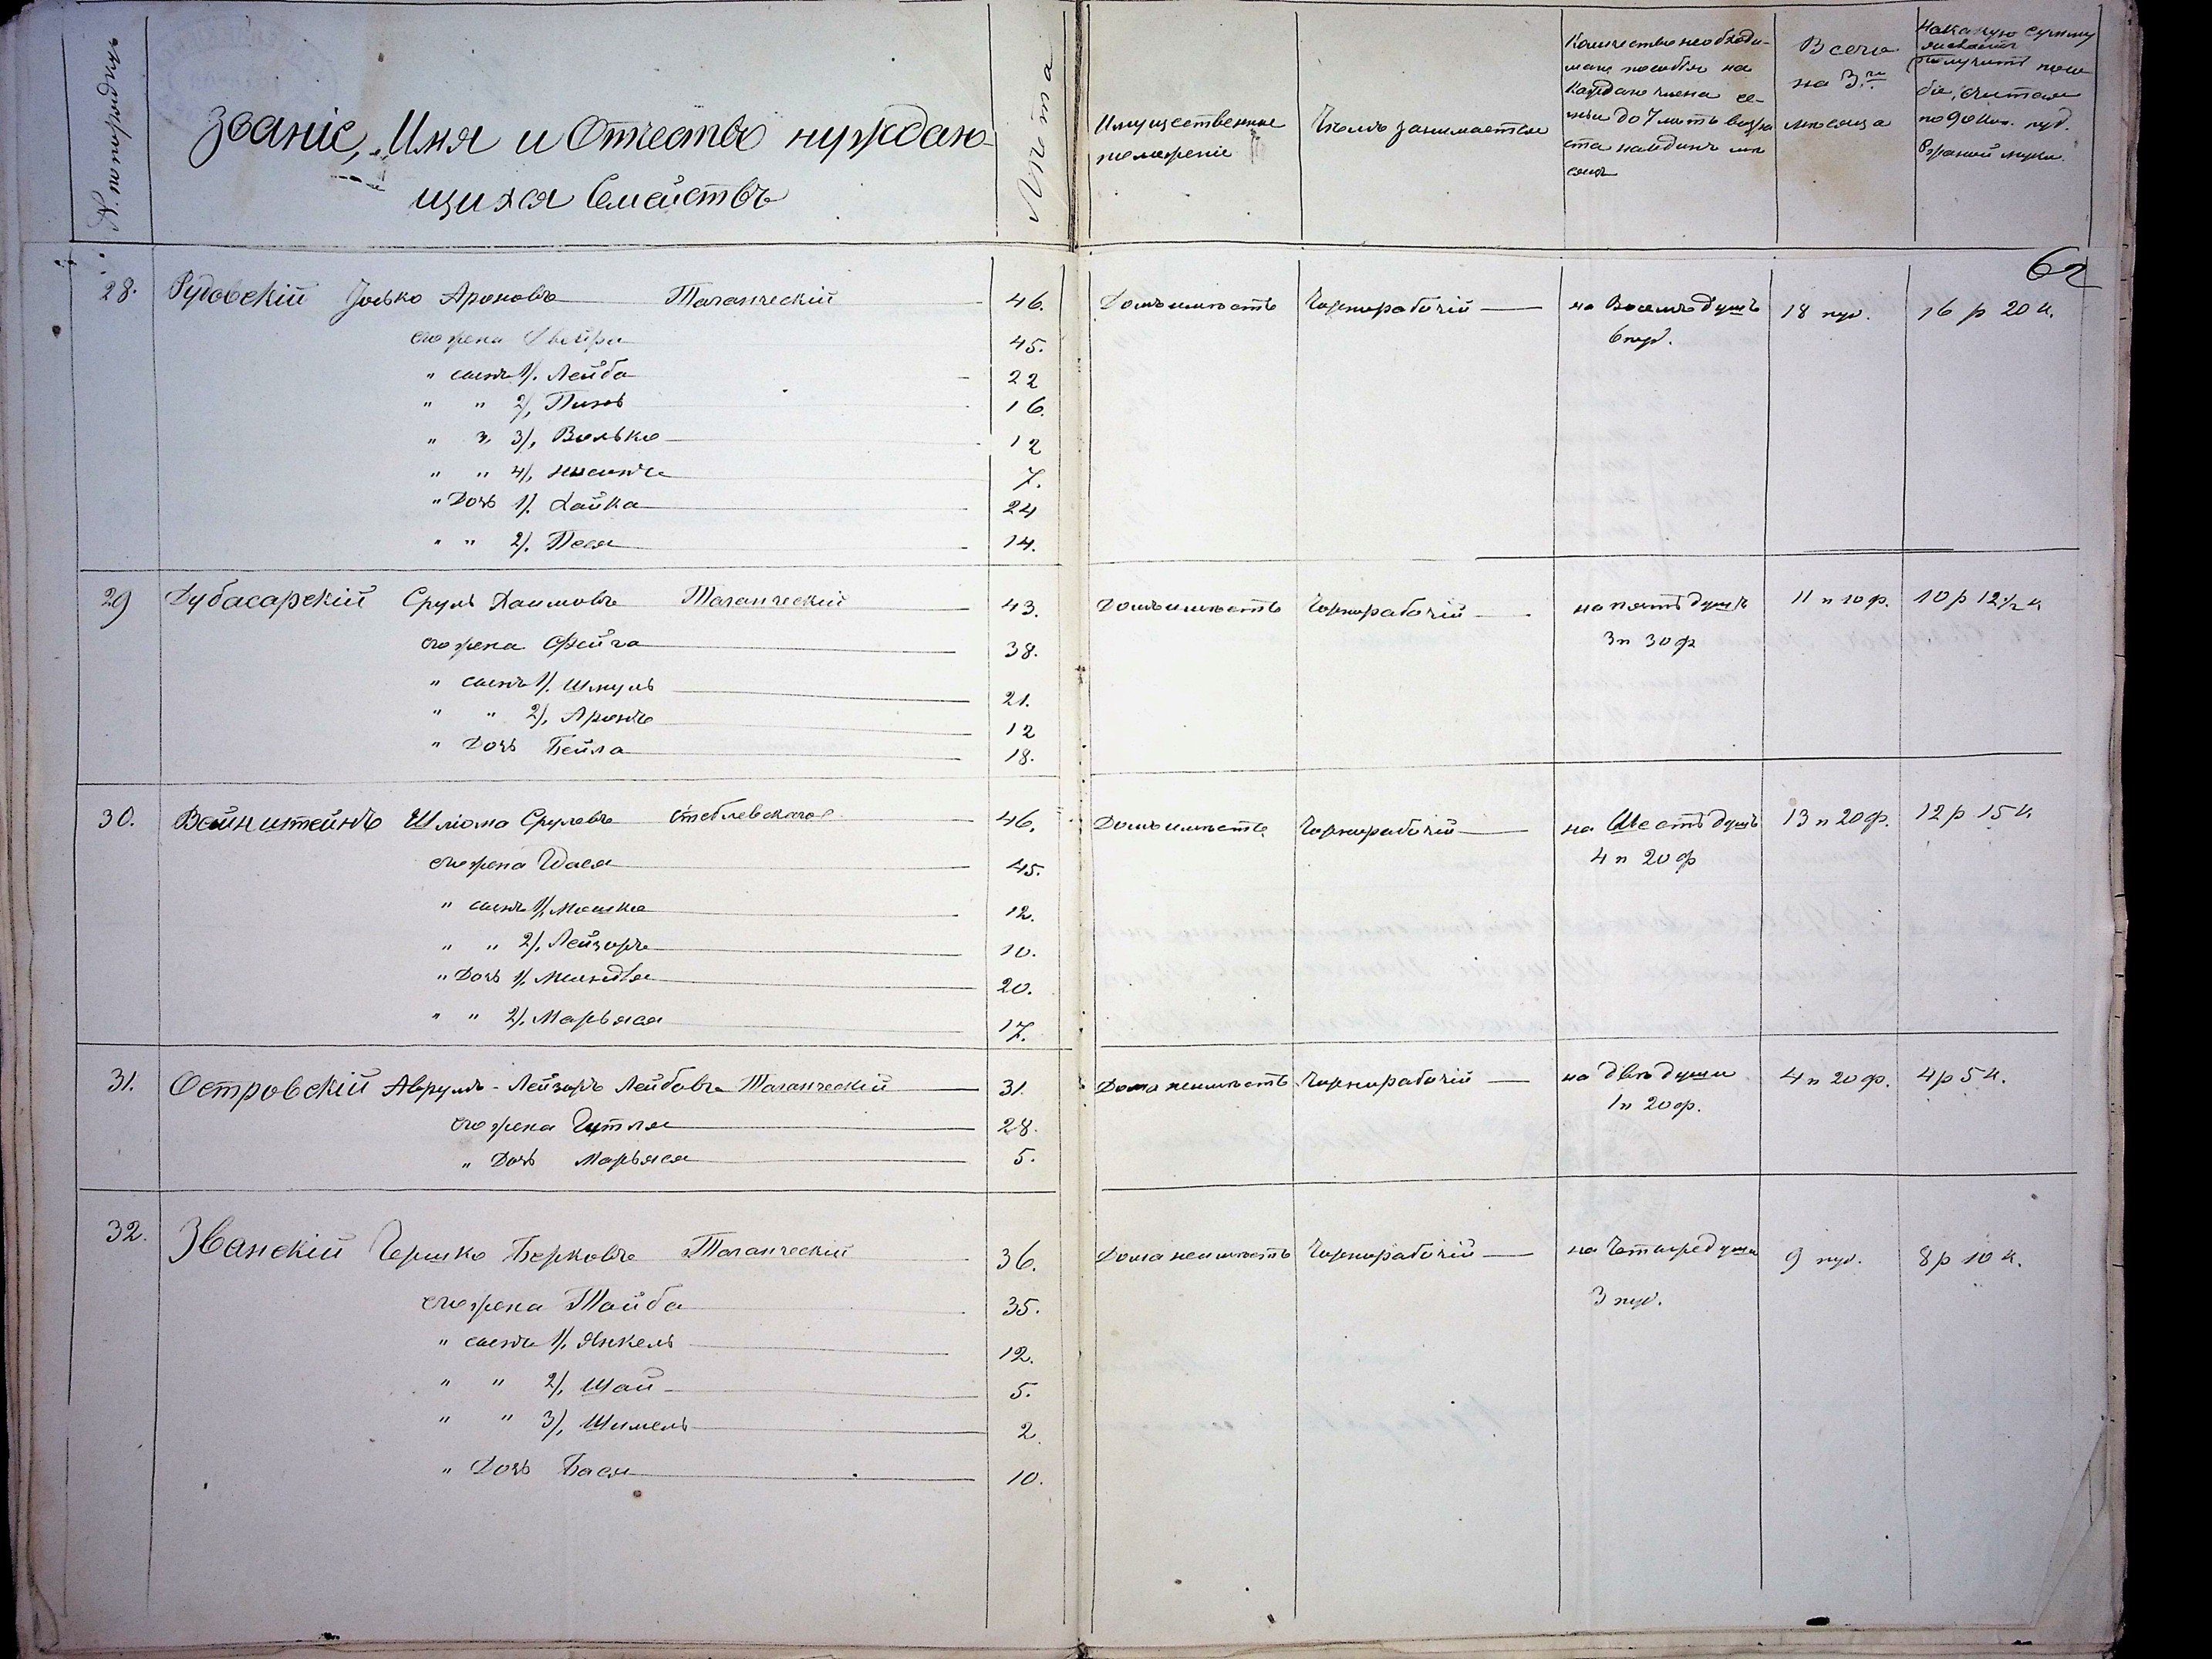 № по порядку
Званіе, Имя и Отчество нуждаю-
щихся Семействъ
Лѣта
Имущественное
положеніе
Чѣмъ занимается
Количество необходи-
маго пособія на
Каждаго члена се-
мьи до 7 лѣтъ возра
ста на одинъ мѣ
сяцъ
Всего
на 3ри
мѣсяца
На какую сумму
получитъ посо
біе, считая
по 90 коп. пуд.
Ржаной муки.
62
28. Рудовскій Іосько Ароновъ Таганческій 46. Домъ имѣетъ Чернорабочій на Восемь душъ 18 пуд. 16 р 20 к.
его жена Двейра 45. 6 пуд.
" сынъ 1/. Лейба 22
" " 2/, Пинхъ 16.
" " 3/, Волько 12
" " 4/, 7.
" Дочь 1/. Хайка 24
" " 2/. Песя 14.
29 Дубасарскій Сруль Хаимовъ Таганческій 43. Домъ имѣетъ Чернорабочій на пять душъ 11 п 10 ф. 10 р 12½ к
его жена Фейга 38. 3 п 30 ф
" сынъ 1/. Шмуль 21.
" " 2/, Аронъ 12
" Дочь Бейла 18.
30. Вейнштейнъ Шліома Срулевъ Стеблевскаго 46. Домъ имѣетъ Чернорабочій на Шесть душъ 13 п 20 ф. 12 р 15 к
его жена Хася 45. 4 п 20 ф
" сынъ 1/, Мошко 12.
" " 2/. Лейзоръ 10.
" Дочь 1/. Миндля 20.
" " 2/. Марьяся 17.
31. Островскій Аврумъ-Лейзоръ Лейбовъ Таганческій 31. Дома неимѣетъ Чернорабочій на двѣ души 4 п 20 ф. 4 р 5 к.
его жена Гутля 28. 1 п 20 ф.
" Дочь Марьяся 5.
32. Званскій Гершко Берковъ Таганческій 36. Дома неимѣетъ Чернорабочій на Четыре души 9 пуд. 8 р 10 к.
его жена Тайба 35. 3 пуд.
" сынъ 1/. Янкель 12.
" " 2/, Шай 5.
" " 3/, Шимель 2
" Дочь Бася 10.